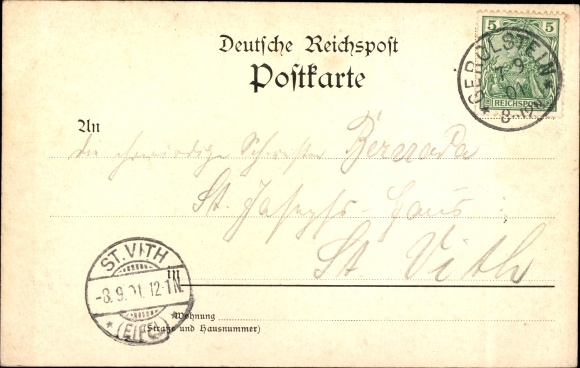 Deutsche Reichspost
Postkarte
5 5
REICHSPOST
GEROLSTEIN
7 9
01
8-
An
die ehrwürdige Schwester Bernarda
St. Josephs-Haus
in
St Vith
ST. VITH
-8.9.01.12-1N.
* (EIFEL) *
Wohnung
(Straße und Hausnummer)